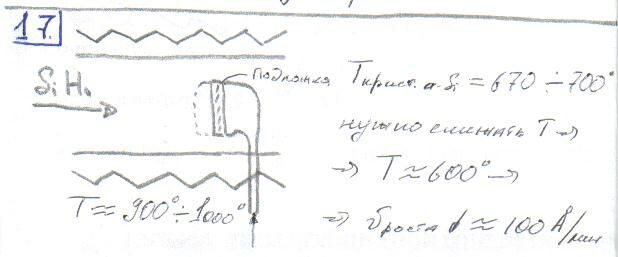 17.
подложка
SiH₄
T крист. a-Si = 670 ÷ 700°
нужно снижать T →
→ T ≈ 600° →
T ≈ 900° ÷ 1000°
→ υ роста ≈ 100 Å/мин